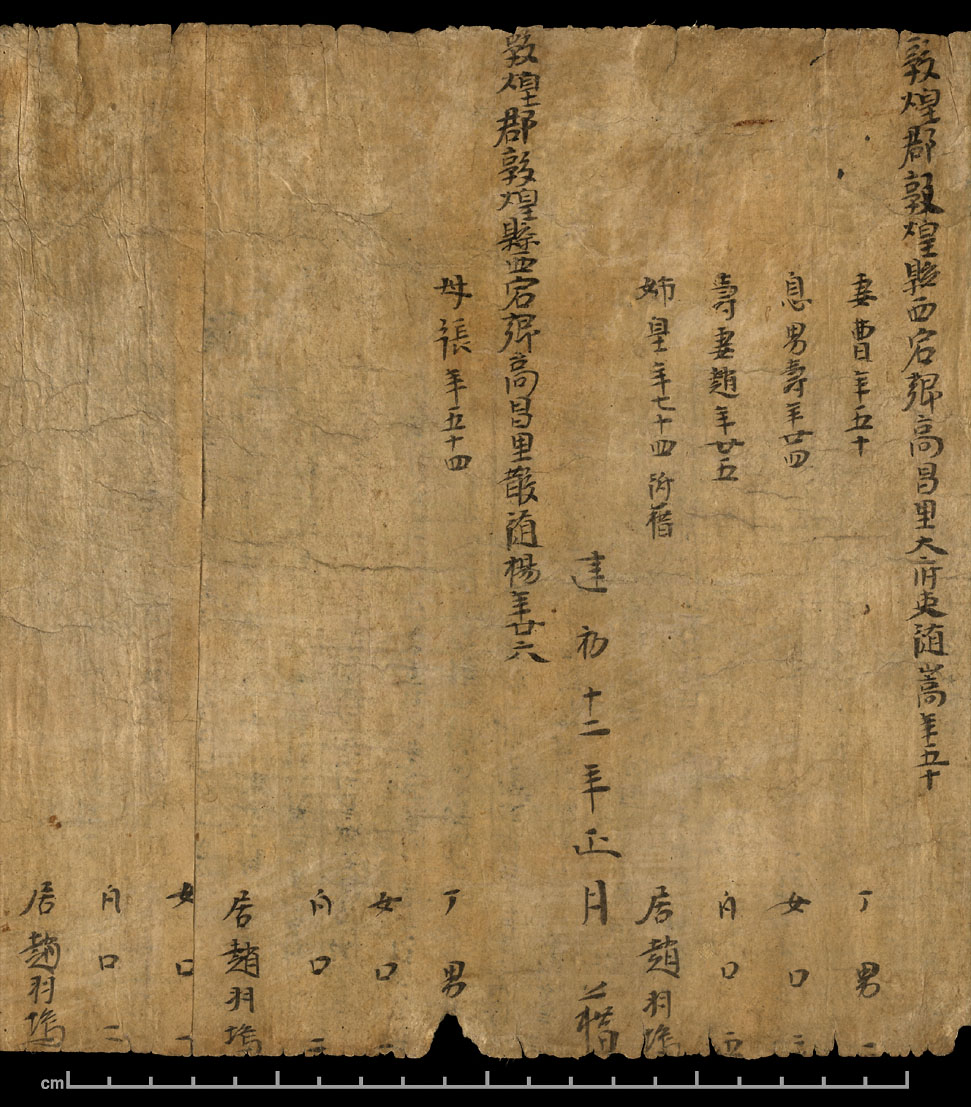 敦煌郡敦煌縣西宕鄉高昌里大府吏随嵩年五十
妻曹年五十 丁男二
息男壽年廿四 女口三
壽妻趙年廿五 凡口五
姉皇年七十四附籍 居趙羽塢
建初十二年正月籍
敦煌郡敦煌縣西宕鄉高昌里散随楊年廿六
母張年五十四 丁男一
女口一
凡口二
居趙羽塢
女口一
凡口二
居趙羽塢